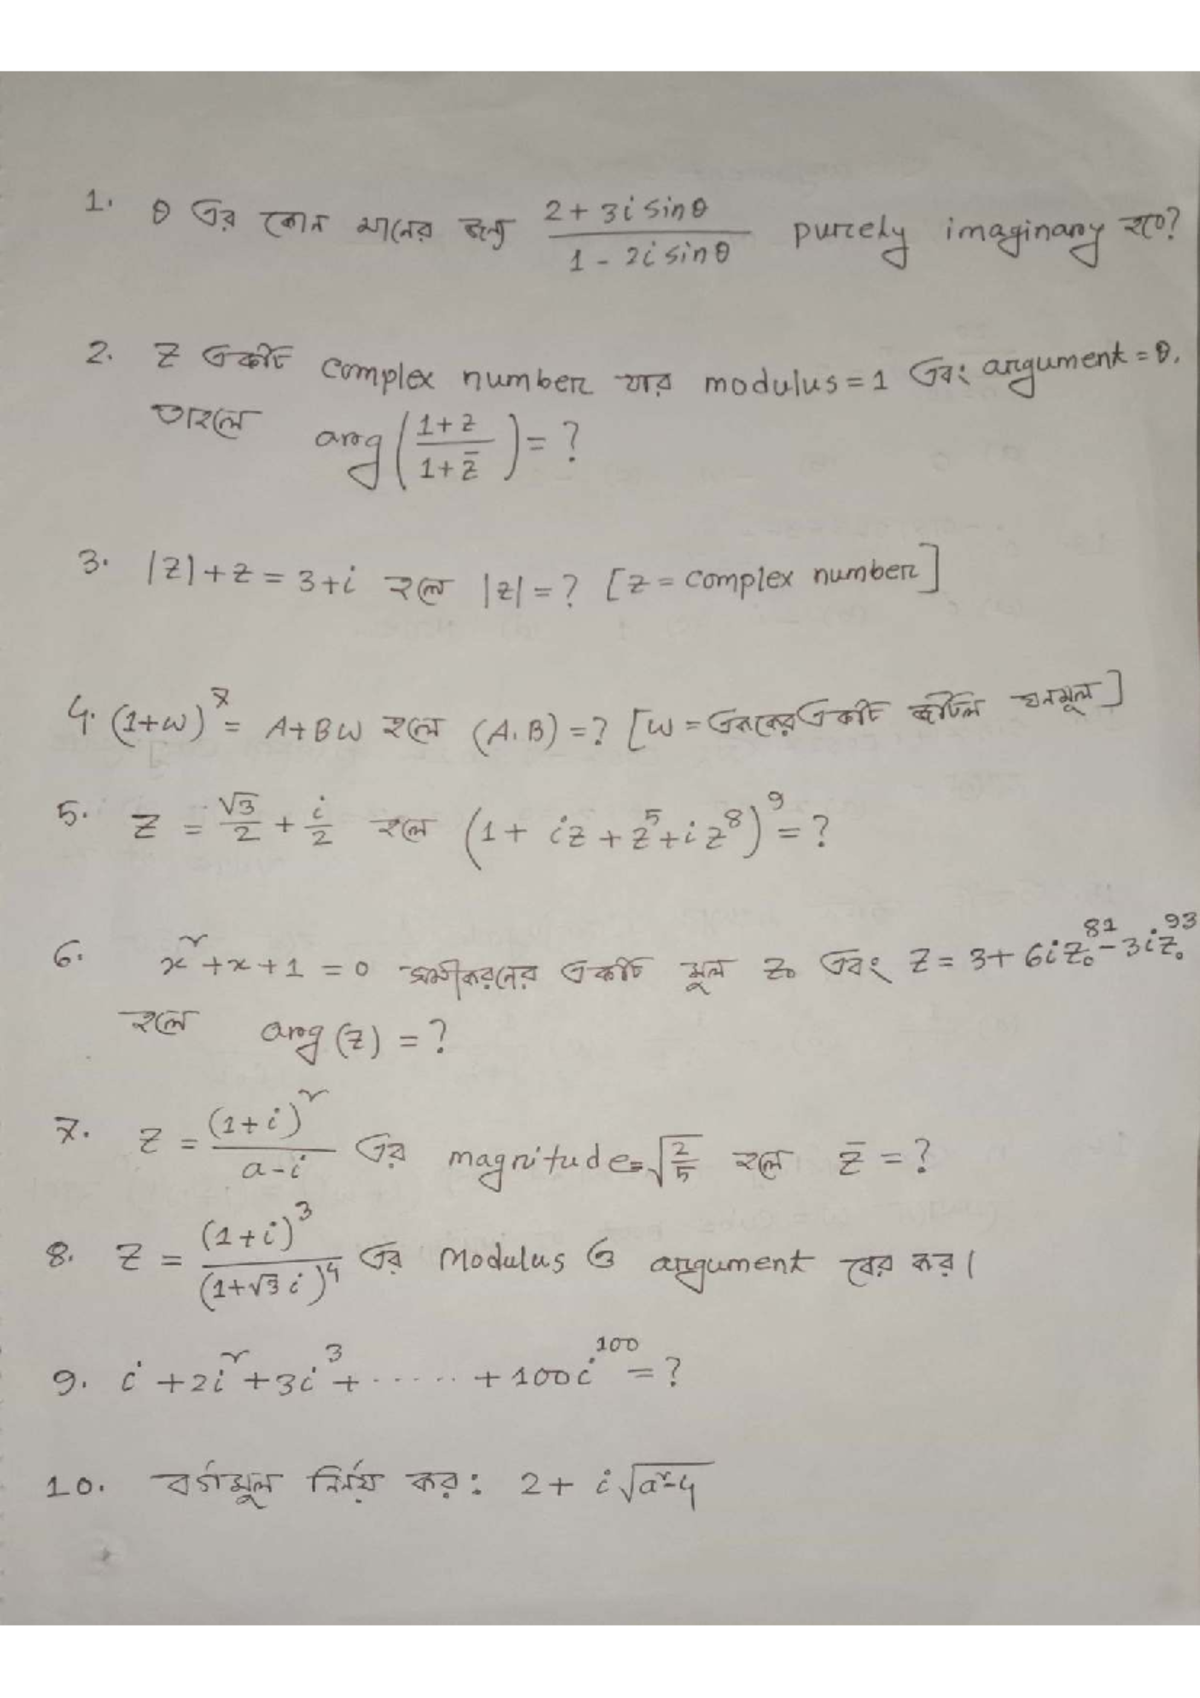 1. θ এর কোন মানের জন্য (2 + 3i sinθ)/(1 - 2i sinθ) purely imaginary হবে?
2. z একটি complex number যার modulus = 1 এবং argument = θ.
তাহলে arg((1+z)/(1+z̄)) = ?
3. |z| + z = 3 + i হলে |z| = ? [z = complex number]
4. (1+ω)⁷ = A + Bω হলে (A, B) = ? [ω = এককের একটি জটিল ঘনমূল]
5. z = √3/2 + i/2 হলে (1 + iz + z⁵ + iz⁸)⁹ = ?
6. x² + x + 1 = 0 সমীকরনের একটি মূল z₀ এবং z = 3 + 6iz₀⁸¹ - 3iz₀⁹³
হলে arg(z) = ?
7. z = (1+i)²/(a-i) এর magnitude = √(2/5) হলে z̄ = ?
8. z = (1+i)³/(1+√3i)⁴ এর Modulus ও argument বের কর।
9. i + 2i² + 3i³ + ...... + 100i¹⁰⁰ = ?
10. বর্গমূল নির্নয় কর: 2 + i√(a²-4)